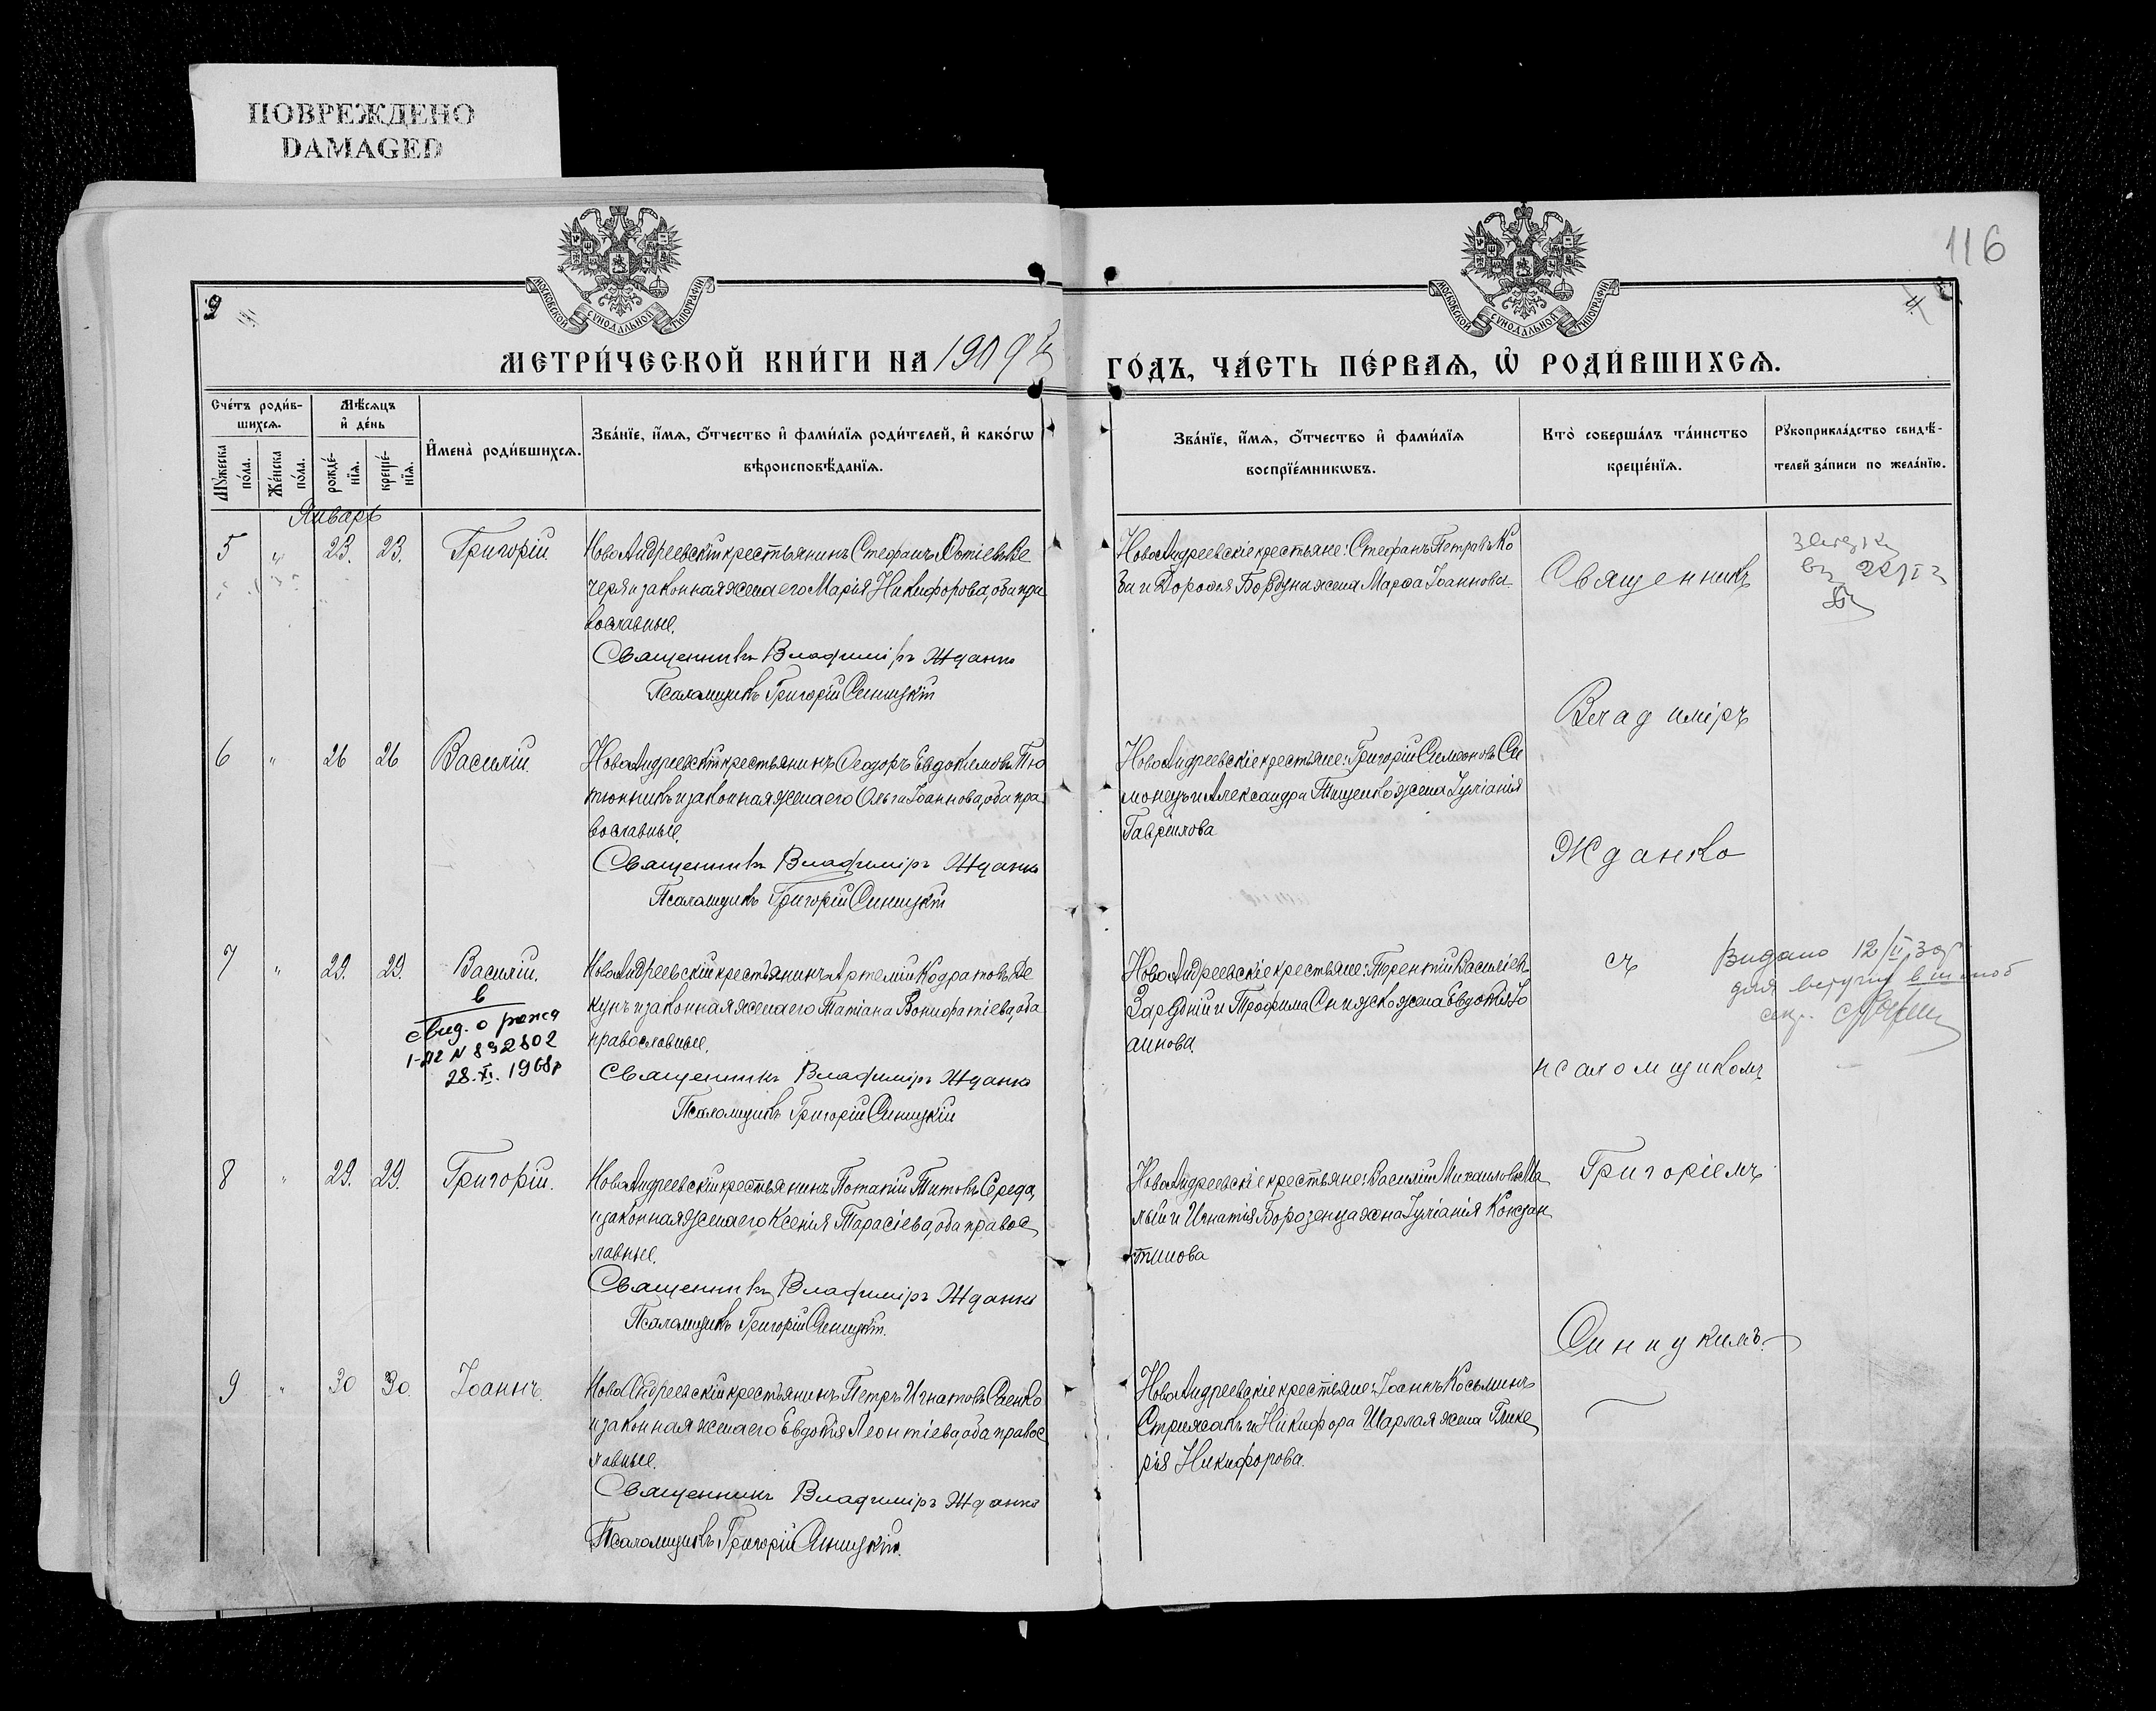 ПОВРЕЖДЕНО
DAMAGED
116
МОСКОВСКОЙ СУНОДАЛЬНОЙ ТИПОГРАФІИ
МОСКОВСКОЙ СУНОДАЛЬНОЙ ТИПОГРАФІИ
МЕТРИ́ЧЕСКОЙ КНИ́ГИ НА 1909
ГО́ДЪ, ЧА́СТЬ ПЕ́РВАѦ, Ѡ҆ РОДИ́ВШИХСѦ.
Сче́тъ роди́в-
шихсѧ.
Мѣ́сѧцъ
и҆ де́нь
И҆мена̀ роди́вшихсѧ.
Зва́нїе, и҆́мѧ, ѻ҆́тчество и҆ фами́лїѧ роди́телей, и҆ како́гѡ
вѣроисповѣ́данїѧ.
Зва́нїе, и҆́мѧ, ѻ҆́тчество и҆ фами́лїѧ
воспрїе́мникѡвъ.
Кто̀ соверша́лъ та́инство
креще́нїѧ.
Рꙋкоприкла́дство свидѣ́-
телей за́писи по жела́нїю.
Мꙋ́жеска
по́ла.
Же́нска
по́ла.
рожде́-
нїѧ.
креще́-
нїѧ.
Январь
5 " 23. 23. Григорій
НовоАндреевскій крестьянинъ Стефанъ Ве
черя и законная жена его Марія Никифорова, оба пра
вославные.
Священникъ Владиміръ Жданко
Псаломщикъ Григорій Синицкій
НовоАндреевскіе крестьяне: Стефанъ Петровъ Ко
за и Дорофея жена Марфа Іоаннова
Священникъ
Владиміръ
6 " 26 26 Василій.
НовоАндреевскій крестьянинъ Ѳеодоръ Евдокимовъ Тю
тюнникъ и законная жена его Ольга Іоаннова, оба пра
вославные.
Священникъ Владиміръ Жданко
Псаломщикъ Григорій Синицкій
НовоАндреевскіе крестьяне: Григорій Симеоновъ Си
монецъ и Александра Тищенко жена Іуліанія
Гаврилова
Жданко
7 " 29. 29. Василій.
в
свид. о рожд
N 892802
28.XI.1968г
НовоАндреевскій крестьянинъ Артемій Кодратовъ Де
кунъ и законная жена его Татіана Вонифатіева, оба
православные.
Священникъ Владиміръ Жданко
Псаломщикъ Григорій Синицкій
НовоАндреевскіе крестьяне: Терентій Васильевъ
Зарудній и Трофима жена Евдокія Іо
аннова.
съ
Видано 12/II 30
для
псаломщикомъ
8 " 29. 29. Григорій.
НовоАндреевскій крестьянинъ Потапій Титовъ Середа,
и законная жена его Ксенія Тарасіева, оба правос
лавные.
Священникъ Владиміръ Жданко
Псаломщикъ Григорій Синицкій.
НовоАндреевскіе крестьяне: Василій Михаиловъ Ма
лый и Игнатія Борозенца жена Іуліанія Констан
тинова
Григоріемъ
Синицкимъ.
9 " 30 30. Іоаннъ.
НовоАндреевскій крестьянинъ Петръ Игнатовъ Саенко
и законная жена его Евдокія Леонтіева, оба правос
лавные.
Священникъ Владиміръ Жданко
Псаломщикъ Григорій Синицкій.
НовоАндреевскіе крестьяне: Іоаннъ Косьминъ
Стрижакъ и Никифора Шарлая жена Глике
рія Никифорова.